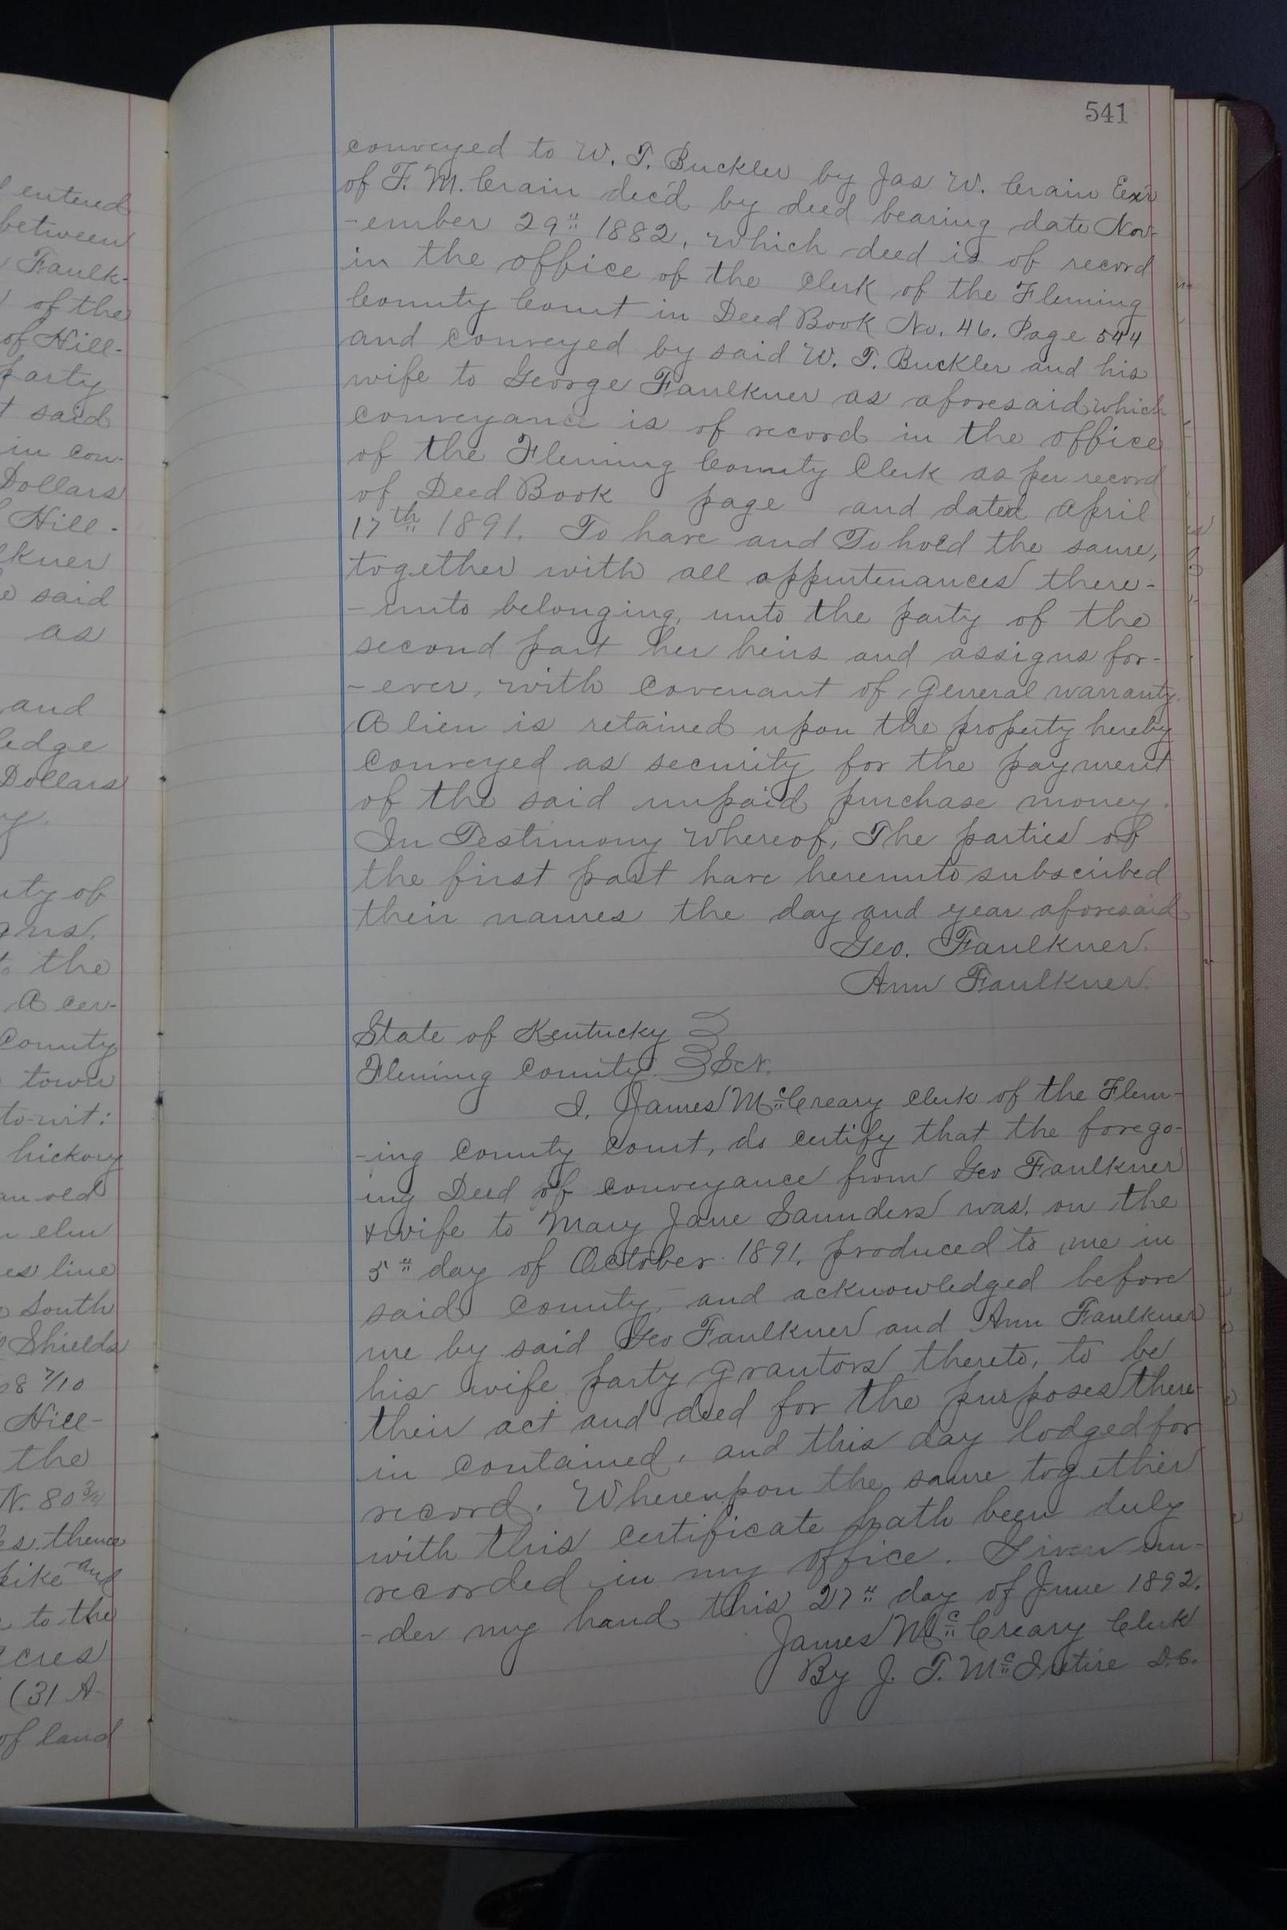 entered
between
Faulk-
of the
of Hill-
party
said
in con-
Dollars
Hill-
said
as
and
Dollars
of
the
A cer-
County
town
to-wit:
hickory
an old
elm
line
South
Shields
7/10
Hill-
the
N. 80 3/4
thence
pike and
to the
acres
(31 A-
of land
541
conveyed to W. T. Buckler by Jas W. Crain Exr
of F. M. Crain dec'd by deed bearing date Nov-
-ember 29" 1882, which deed is of record
in the office of the Clerk of the Fleming
County Court in Deed Book No. 46. Page 544
and conveyed by said W. T. Buckler and his
wife to George Faulkner as aforesaid which
conveyance is of record in the office
of the Fleming County Clerk as per record
of Deed Book page and dated April
17th 1891. To have and To hold the same,
together with all appurtenances there-
-unto belonging, unto the party of the
second part her heirs and assigns for-
-ever, with Covenant of General warranty.
A lien is retained upon the property hereby
conveyed as security for the payment
of the said unpaid purchase money.
In Testimony Whereof, The parties of
the first part have hereunto subscribed
their names the day and year aforesaid
Geo. Faulkner.
Ann Faulkner.
State of Kentucky
Fleming County. Sct.
I, James McCreary Clerk of the Flem-
-ing County Court, do certify that the forego-
ing Deed of conveyance from Geo Faulkner
& wife to Mary Jane Saunders was, on the
5" day of October 1891, produced to me in
said County, and acknowledged before
me by said Geo Faulkner and Ann Faulkner
his wife party grantors thereto, to be
their act and deed for the purposes there-
in contained, and this day lodged for
record. Whereupon the same together
with this certificate hath been duly
recorded in my office. Given un-
-der my hand this 27" day of June 1892.
James McCreary Clerk
By J. T. McIntire D.C.